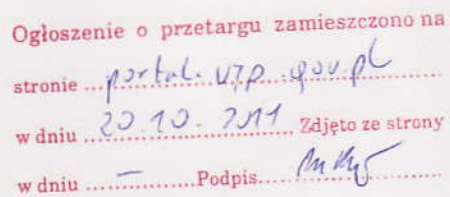 Ogłoszenie o przetargu zamieszczono na
stronie ... portal.uzp.gov.pl ...
w dniu ... 20.10.2011 ... Zdjęto ze strony
w dniu ... — ... Podpis ...